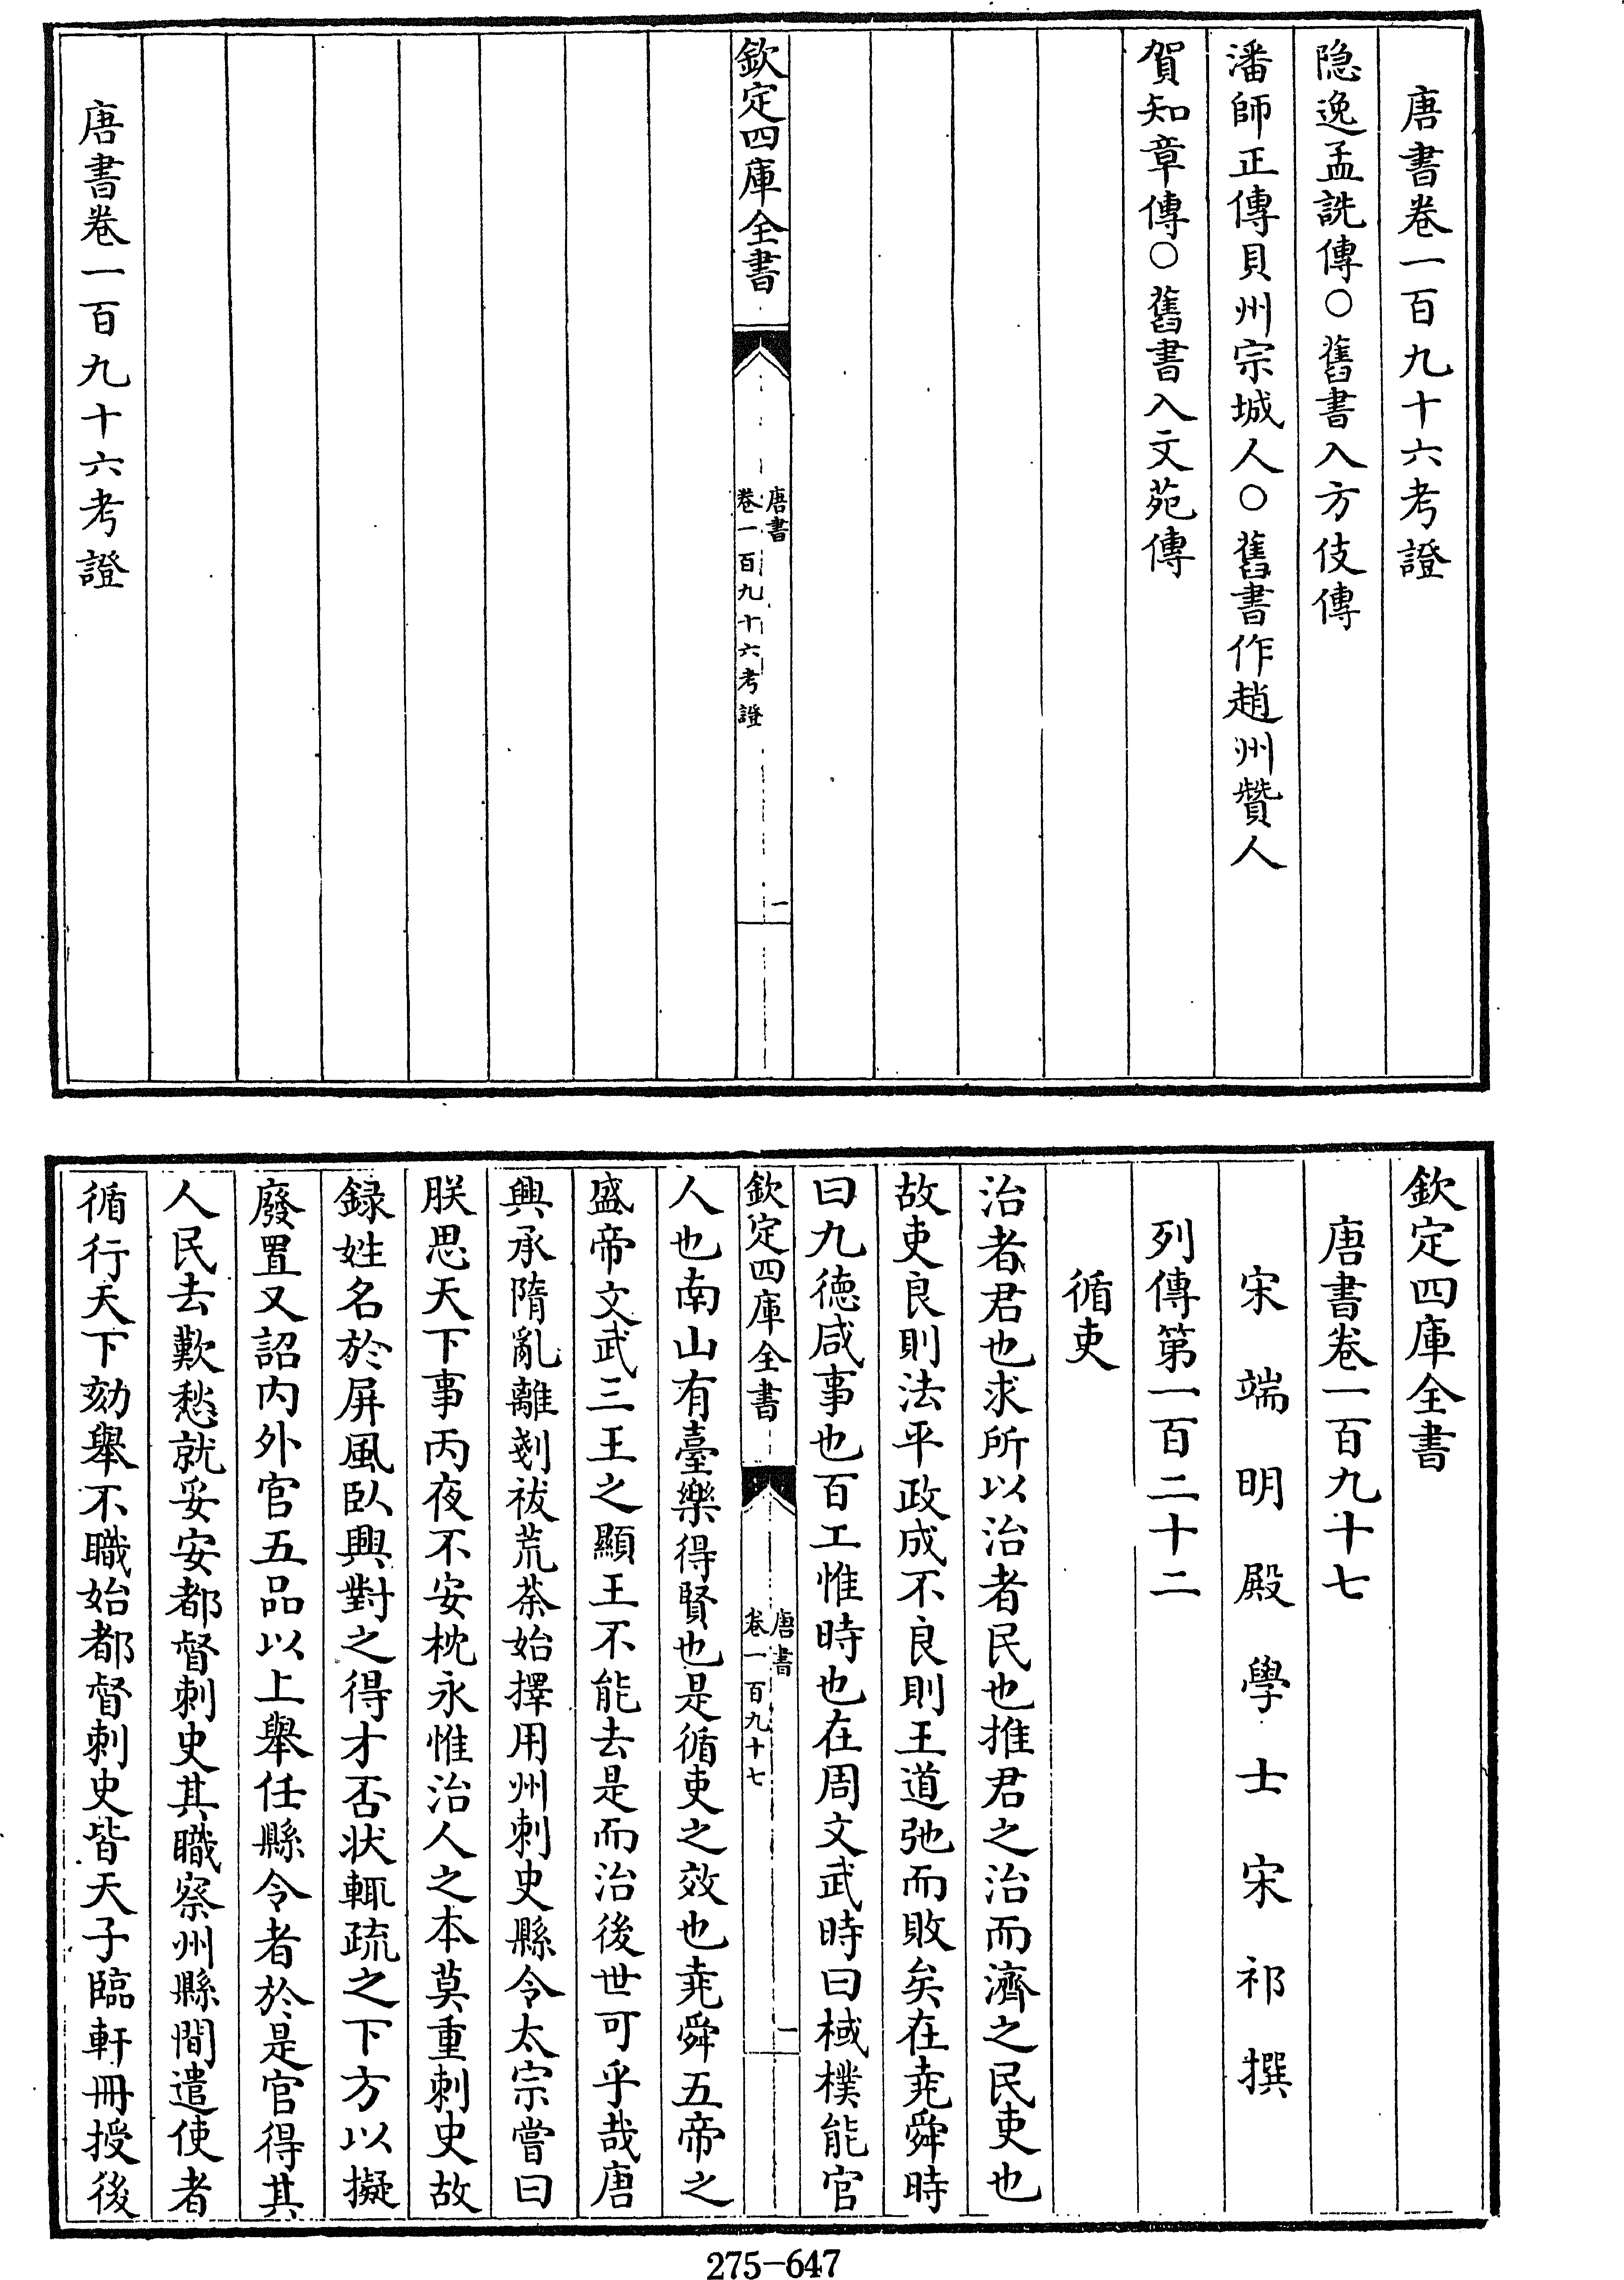 唐書卷一百九十六考證
隐逸孟詵傳○舊書入方伎傳
潘師正傳貝州宗城人○舊書作趙州贊人
賀知章傳○舊書入文苑傳
欽定四庫全書
唐書
卷一百九十六考證
一
唐書卷一百九十六考證
欽定四庫全書
唐書卷一百九十七
宋端明殿學士宋祁撰
列傳第一百二十二
循吏
治者君也求所以治者民也推君之治而濟之民吏也
故吏良則法平政成不良則王道弛而敗矣在堯舜時
曰九德咸事也百工惟時也在周文武時曰棫樸能官
欽定四庫全書
唐書
卷一百九十七
一
人也南山有臺樂得賢也是循吏之效也堯舜五帝之
盛帝文武三王之顯王不能去是而治後世可乎哉唐
興承隋亂離剗祓荒荼始擇用州刺史縣令太宗嘗曰
朕思天下事丙夜不安枕永惟治人之本莫重刺史故
録姓名於屏風臥興對之得才否状輒疏之下方以擬
廢置又詔内外官五品以上舉任縣令者於是官得其
人民去歎愁就妥安都督刺史其職察州縣間遣使者
循行天下劾舉不職始都督刺史皆天子臨軒冊授後
275-647